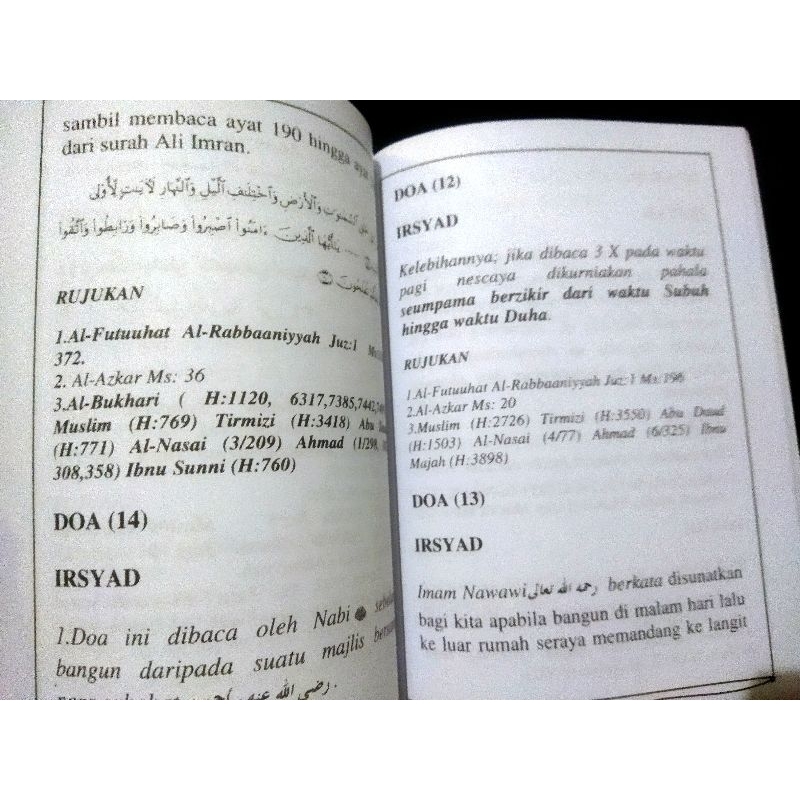 DOA (12)
IRSYAD
Kelebihannya; jika dibaca 3 X pada waktu
pagi nescaya dikurniakan pahala
seumpama berzikir dari waktu Subuh
hingga waktu Duha.
RUJUKAN
1.Al-Futuuhat Al-Rabbaaniyyah Juz:1 Ms:196
2.Al-Azkar Ms: 20
3.Muslim (H:2726) Tirmizi (H:3550) Abu Daud
(H:1503) Al-Nasai (4/77) Ahmad (6/325) Ibnu
Majah (H:3898)
DOA (13)
IRSYAD
Imam Nawawi رحمه الله تعالى berkata disunatkan
bagi kita apabila bangun di malam hari lalu
ke luar rumah seraya memandang ke langit
sambil membaca ayat 190 hingga
dari surah Ali Imran.
ٱلسَّمَٰوَٰتِ وَٱلْأَرْضِ وَٱخْتِلَٰفِ ٱلَّيْلِ وَٱلنَّهَارِ لَأٓيَٰتٍ لِّأُو۟لِى
يَٰٓأَيُّهَا ٱلَّذِينَ ءَامَنُوا۟ ٱصْبِرُوا۟ وَصَابِرُوا۟ وَرَابِطُوا۟ وَٱتَّقُوا۟
تُفْلِحُونَ
RUJUKAN
1.Al-Futuuhat Al-Rabbaaniyyah Juz:1
372.
2. Al-Azkar Ms: 36
3.Al-Bukhari ( H:1120, 6317,7385,7442,
Muslim (H:769) Tirmizi (H:3418) Abu
(H:771) Al-Nasai (3/209) Ahmad (1/298,
308,358) Ibnu Sunni (H:760)
DOA (14)
IRSYAD
1.Doa ini dibaca oleh Nabi
bangun daripada suatu majlis
رضي الله عنهم